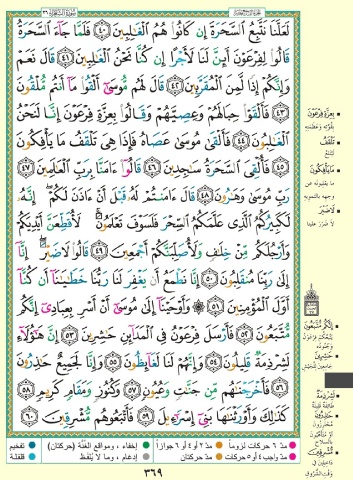 لَعَلَّنَا نَتَّبِعُ السَّحَرَةَ إِن كَانُوا هُمُ الْغَالِبِينَ ﴿٤٠﴾ فَلَمَّا جَاءَ السَّحَرَةُ
قَالُوا لِفِرْعَوْنَ أَئِنَّ لَنَا لَأَجْرًا إِن كُنَّا نَحْنُ الْغَالِبِينَ ﴿٤١﴾ قَالَ نَعَمْ
وَإِنَّكُمْ إِذًا لَّمِنَ الْمُقَرَّبِينَ ﴿٤٢﴾ قَالَ لَهُم مُّوسَىٰ أَلْقُوا مَا أَنتُم مُّلْقُونَ
﴿٤٣﴾ فَأَلْقَوْا حِبَالَهُمْ وَعِصِيَّهُمْ وَقَالُوا بِعِزَّةِ فِرْعَوْنَ إِنَّا لَنَحْنُ
الْغَالِبُونَ ﴿٤٤﴾ فَأَلْقَىٰ مُوسَىٰ عَصَاهُ فَإِذَا هِيَ تَلْقَفُ مَا يَأْفِكُونَ
﴿٤٥﴾ فَأُلْقِيَ السَّحَرَةُ سَاجِدِينَ ﴿٤٦﴾ قَالُوا آمَنَّا بِرَبِّ الْعَالَمِينَ ﴿٤٧﴾
رَبِّ مُوسَىٰ وَهَارُونَ ﴿٤٨﴾ قَالَ آمَنتُمْ لَهُ قَبْلَ أَنْ آذَنَ لَكُمْ إِنَّهُ
لَكَبِيرُكُمُ الَّذِي عَلَّمَكُمُ السِّحْرَ فَلَسَوْفَ تَعْلَمُونَ لَأُقَطِّعَنَّ أَيْدِيَكُمْ
وَأَرْجُلَكُم مِّنْ خِلَافٍ وَلَأُصَلِّبَنَّكُمْ أَجْمَعِينَ ﴿٤٩﴾ قَالُوا لَا ضَيْرَ إِنَّا
إِلَىٰ رَبِّنَا مُنقَلِبُونَ ﴿٥٠﴾ إِنَّا نَطْمَعُ أَن يَغْفِرَ لَنَا رَبُّنَا خَطَايَانَا أَن كُنَّا
أَوَّلَ الْمُؤْمِنِينَ ﴿٥١﴾ وَأَوْحَيْنَا إِلَىٰ مُوسَىٰ أَنْ أَسْرِ بِعِبَادِي إِنَّكُم
مُّتَّبَعُونَ ﴿٥٢﴾ فَأَرْسَلَ فِرْعَوْنُ فِي الْمَدَائِنِ حَاشِرِينَ ﴿٥٣﴾ إِنَّ هَٰؤُلَاءِ
لَشِرْذِمَةٌ قَلِيلُونَ ﴿٥٤﴾ وَإِنَّهُمْ لَنَا لَغَائِظُونَ ﴿٥٥﴾ وَإِنَّا لَجَمِيعٌ حَاذِرُونَ
﴿٥٦﴾ فَأَخْرَجْنَاهُم مِّن جَنَّاتٍ وَعُيُونٍ ﴿٥٧﴾ وَكُنُوزٍ وَمَقَامٍ كَرِيمٍ ﴿٥٨﴾
كَذَٰلِكَ وَأَوْرَثْنَاهَا بَنِي إِسْرَائِيلَ ﴿٥٩﴾ فَأَتْبَعُوهُم مُّشْرِقِينَ ﴿٦٠﴾
بِعِزَّةِ فِرْعَوْنَ
بقوّته وعظمته
تَلْقَفُ
تبتلع
مَا يَأْفِكُونَ
ما يقلبونه عن
وجهه بالتمويه
لَا ضَيْرَ
لا ضرر علينا
إِنَّكُم مُّتَّبَعُونَ
حَاشِرِينَ
لَشِرْذِمَةٌ
حَاذِرُونَ
مُّشْرِقِينَ
مدّ ٦ حركات لزوماً
مدّ ٢ أو ٤ أو ٦ جوازاً
إخفاء، ومواقع الغنّة (حركتان)
تفخيم
مدّ واجب ٤ أو ٥ حركات
مدّ حركتان
إدغام، وما لا يُلفظ
قلقلة
٣٦٩